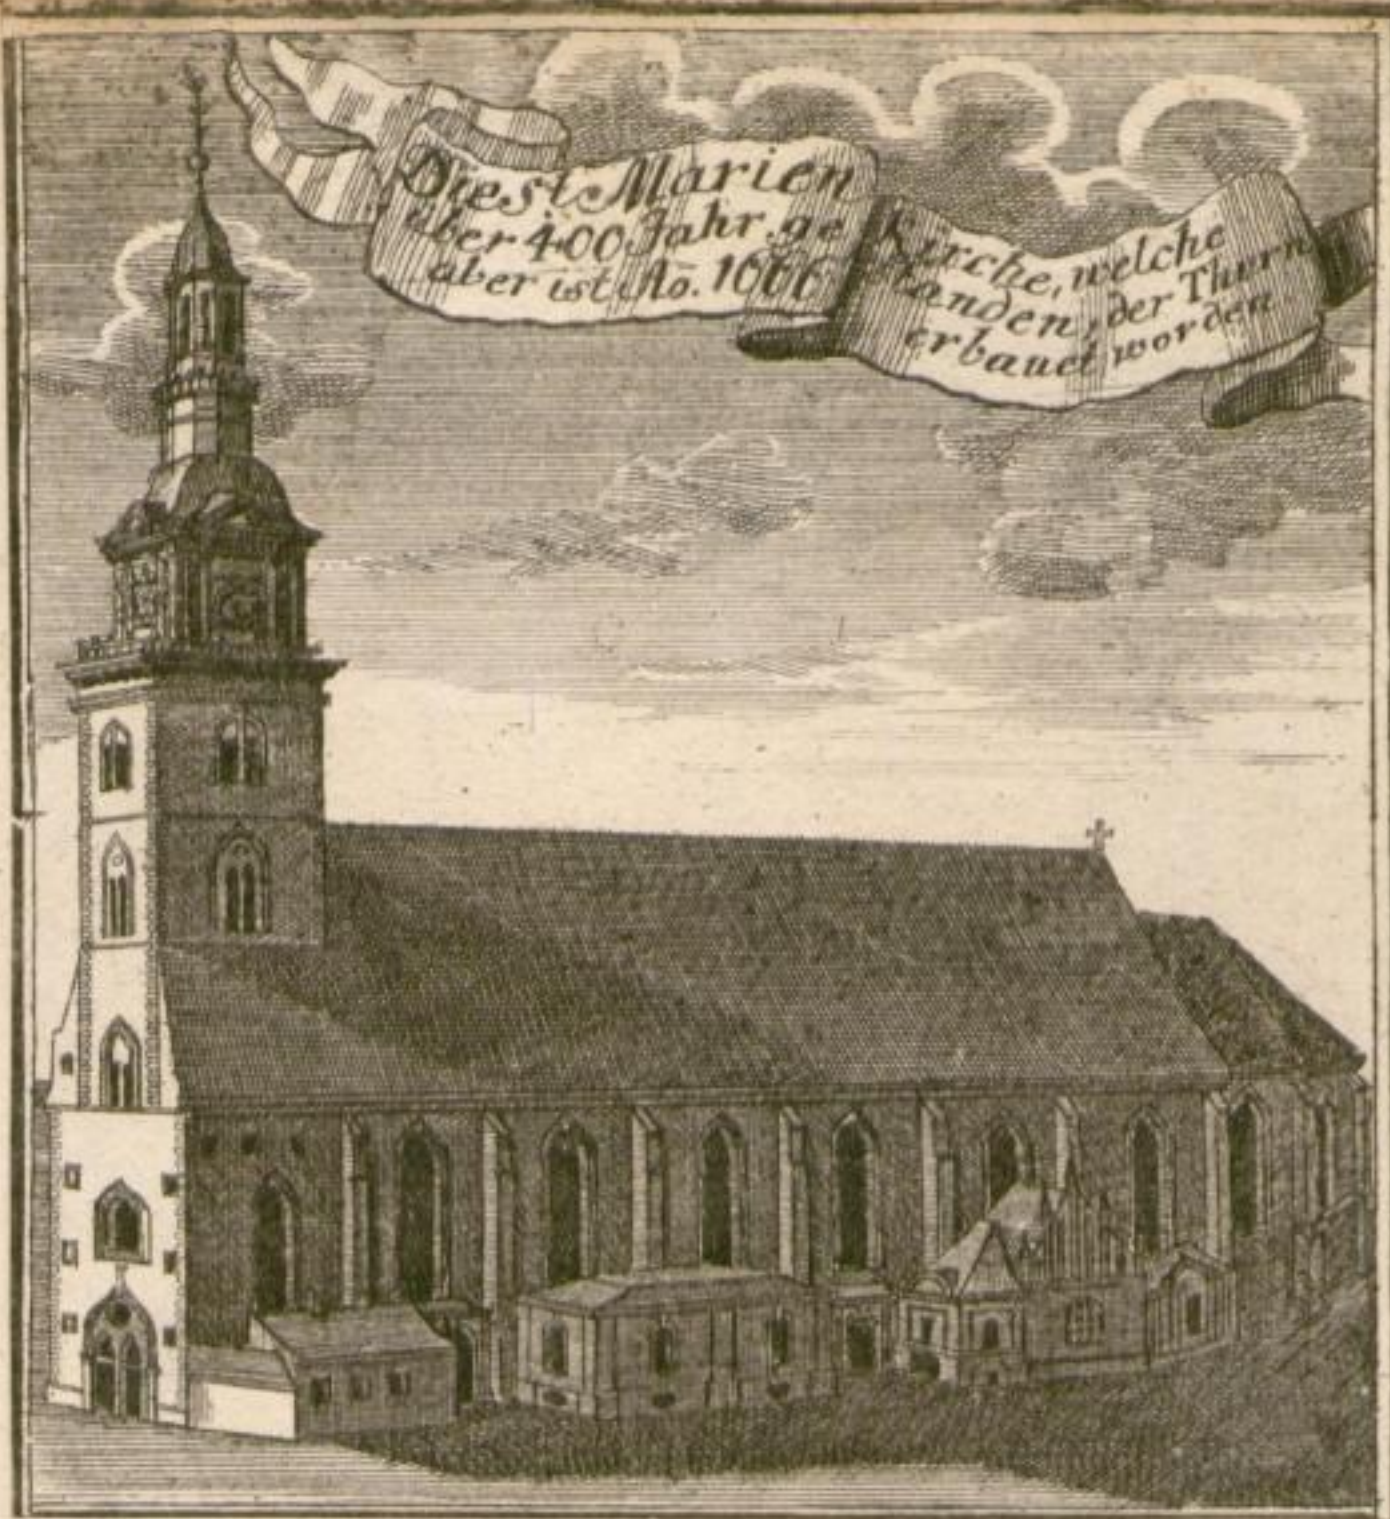 Die St. Marien Kirche, welche
über 400 Jahr ge standen, der Thurn
aber ist Ao. 1666 erbauet worden